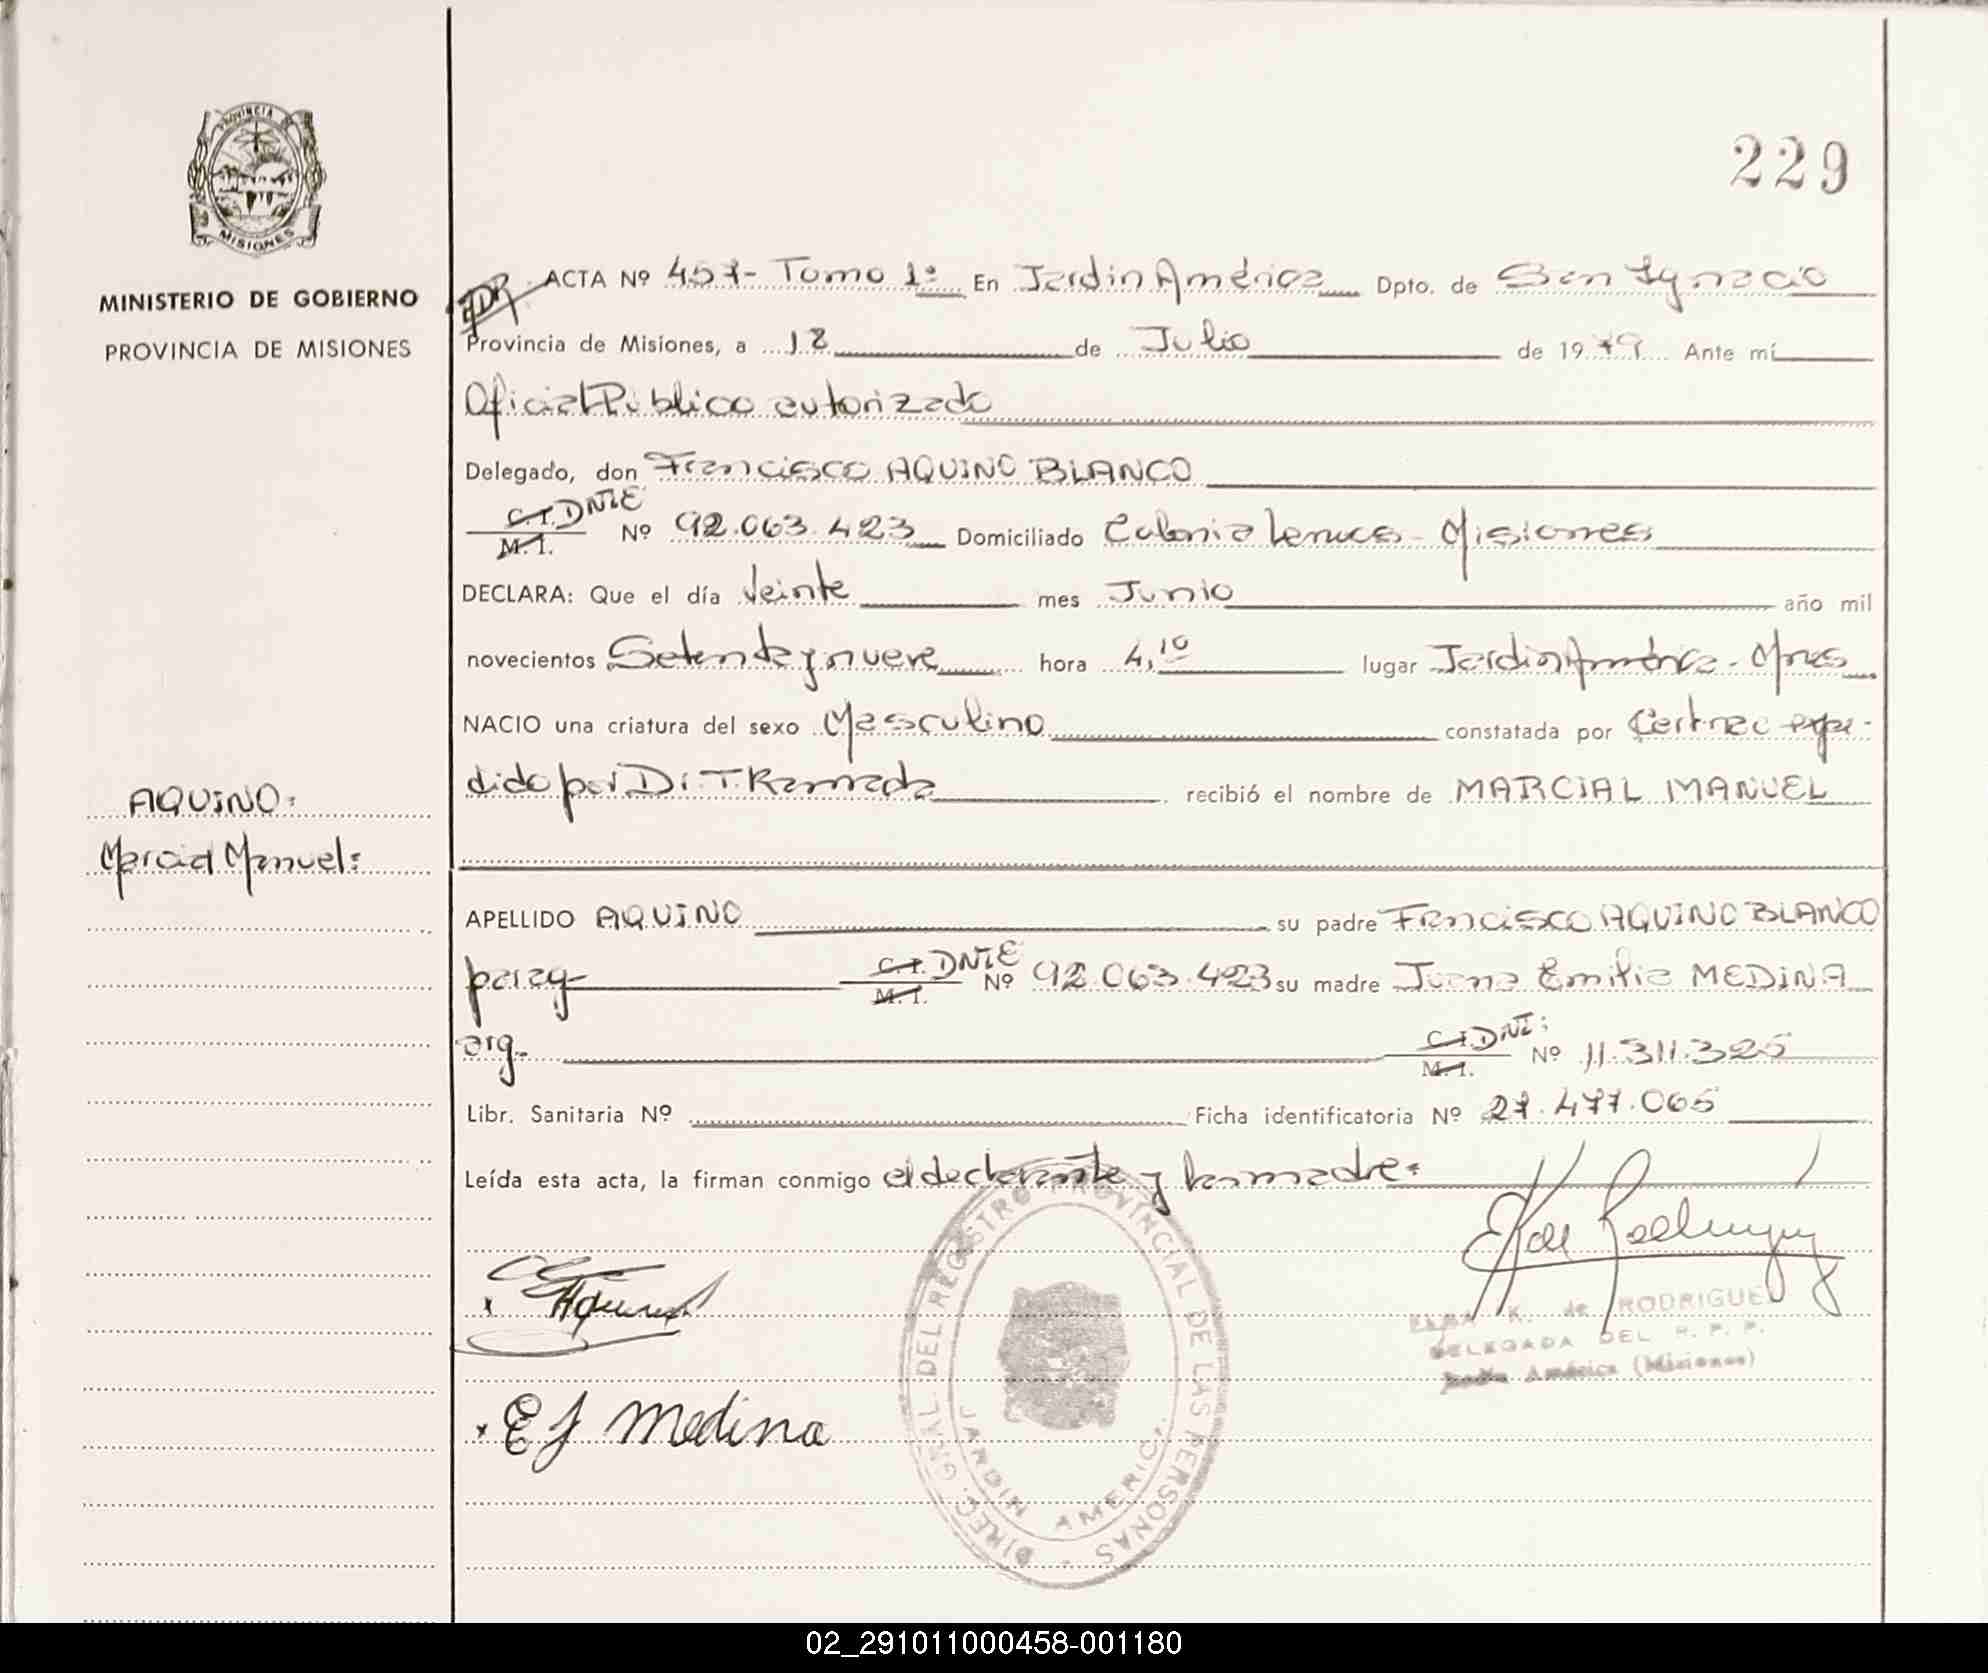 PROVINCIA DE
MISIONES
MINISTERIO DE GOBIERNO
PROVINCIA DE MISIONES
229
ACTA Nº 457- Tomo 1º En Jardin América Dpto. de San Ignacio
Provincia de Misiones, a 18 de Julio de 1979 Ante mí
Oficial Público autorizado
Delegado, don Francisco AQUINO BLANCO
C.I. DNIE
M.I. Nº 92.063.423 Domiciliado Colonia Misiones
DECLARA: Que el día Veinte mes Junio año mil
novecientos Setenta y nueve hora 4,10 lugar Jardin América - Mnes
NACIO una criatura del sexo Masculino constatada por Cert. nac expe-
dido por Dr. T. Ramada recibió el nombre de MARCIAL MANUEL
AQUINO:
Marcial Manuel:
APELLIDO AQUINO su padre Francisco AQUINO BLANCO
parag- C.I. DNIE
M.I. Nº 92.063.423 su madre Juana Emilia MEDINA
arg- C.I. DNI:
M.I. Nº 11.311.325
Libr. Sanitaria Nº Ficha identificatoria Nº 27.477.065
Leída esta acta, la firman conmigo el declarante y la madre:
x Aquino
x EJ Medina
DIREC. GRAL. DEL REGISTRO PROVINCIAL DE LAS PERSONAS
JARDIN AMERICA
K. de RODRIGUEZ
DELEGADA DEL R. P. P.
Jardín América (Misiones)
02_291011000458-001180